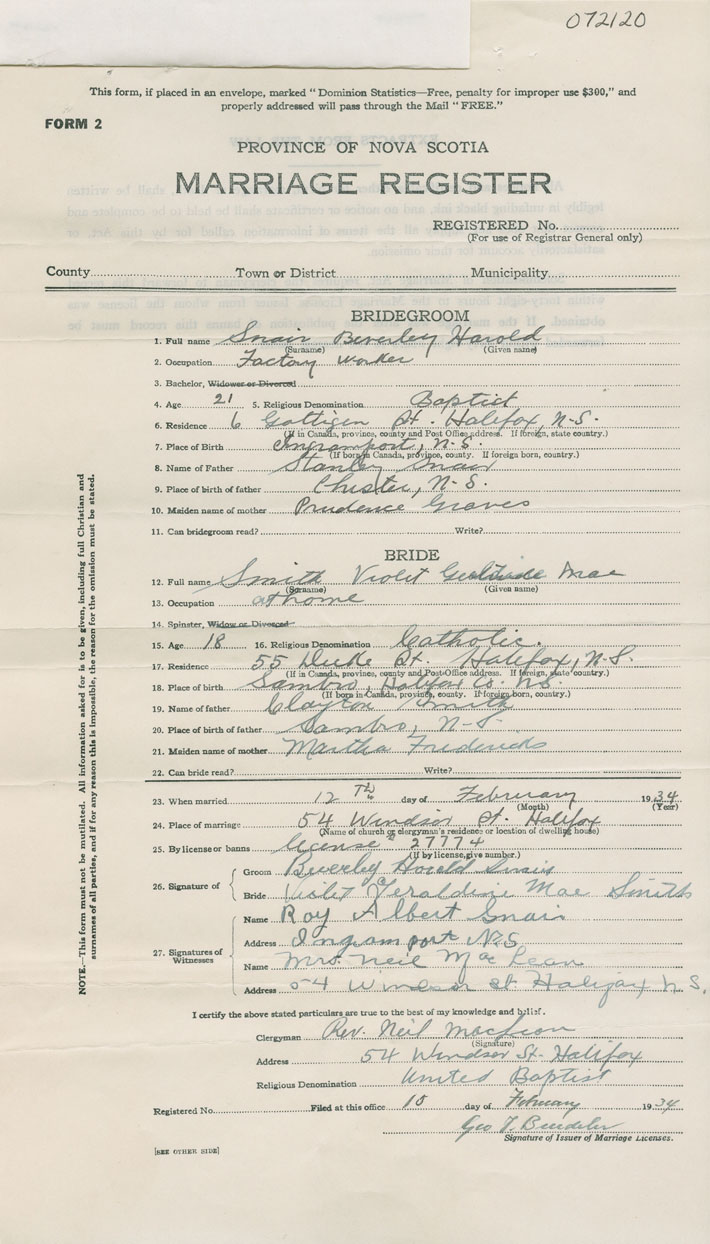 072120
This form, if placed in an envelope, marked "Dominion Statistics—Free, penalty for improper use $300," and
properly addressed will pass through the Mail "FREE."
FORM 2
PROVINCE OF NOVA SCOTIA
MARRIAGE REGISTER
REGISTERED No.
(For use of Registrar General only)
County Town or District Municipality
BRIDEGROOM
1. Full name Snair Beverley Harold
(Surname) (Given name)
2. Occupation Factory Worker
3. Bachelor, Widower or Divorced
4. Age 21 5. Religious Denomination Baptist
6. Residence 6 Gottigen St. Halifax, N.S.
(If in Canada, province, county and Post Office address. If foreign, state country.)
7. Place of Birth Ingramport, N.S.
(If born in Canada, province, county. If foreign born, country.)
8. Name of Father Stanley Snair
9. Place of birth of father Chester, N.S.
10. Maiden name of mother Prudence Graves
11. Can bridegroom read? Write?
BRIDE
12. Full name Smith Violet Mae
(Surname) (Given name)
13. Occupation at home
14. Spinster, Widow or Divorced
15. Age 18 16. Religious Denomination Catholic.
17. Residence 55 Duke St. Halifax, N.S.
(If in Canada, province, county and Post Office address. If foreign, state country.)
18. Place of birth Sambro, Halifax Co. N.S.
(If born in Canada, province, county. If foreign born, country.)
19. Name of father Clayton Smith
20. Place of birth of father Sambro, N.S.
21. Maiden name of mother Martha Fredericks
22. Can bride read? Write?
23. When married 12 Th day of February 1934
(Month) (Year)
24. Place of marriage 54 Windsor St. Halifax
(Name of church or clergyman's residence or location of dwelling house)
25. By license or banns license # 27774
(If by license, give number.)
26. Signature of
Groom Beverley Harold Snair
Bride Violet Geraldine Mae Smith
27. Signatures of Witnesses
Name Roy Albert Snair
Address Ingramport N.S
Name Mrs. Neil MacLean
Address 54 Windsor st Halifax N.S.
I certify the above stated particulars are true to the best of my knowledge and belief.
Clergyman Rev. Neil MacLean
(Signature)
Address 54 Windsor St. Halifax
Religious Denomination United Baptist
Registered No. Filed at this office 15 day of February 1934
Geo T.
Signature of Issuer of Marriage Licenses.
[SEE OTHER SIDE]
NOTE.—This form must not be mutilated. All information asked for is to be given, including full Christian and
surnames of all parties, and if for any reason this is impossible, the reason for the omission must be stated.